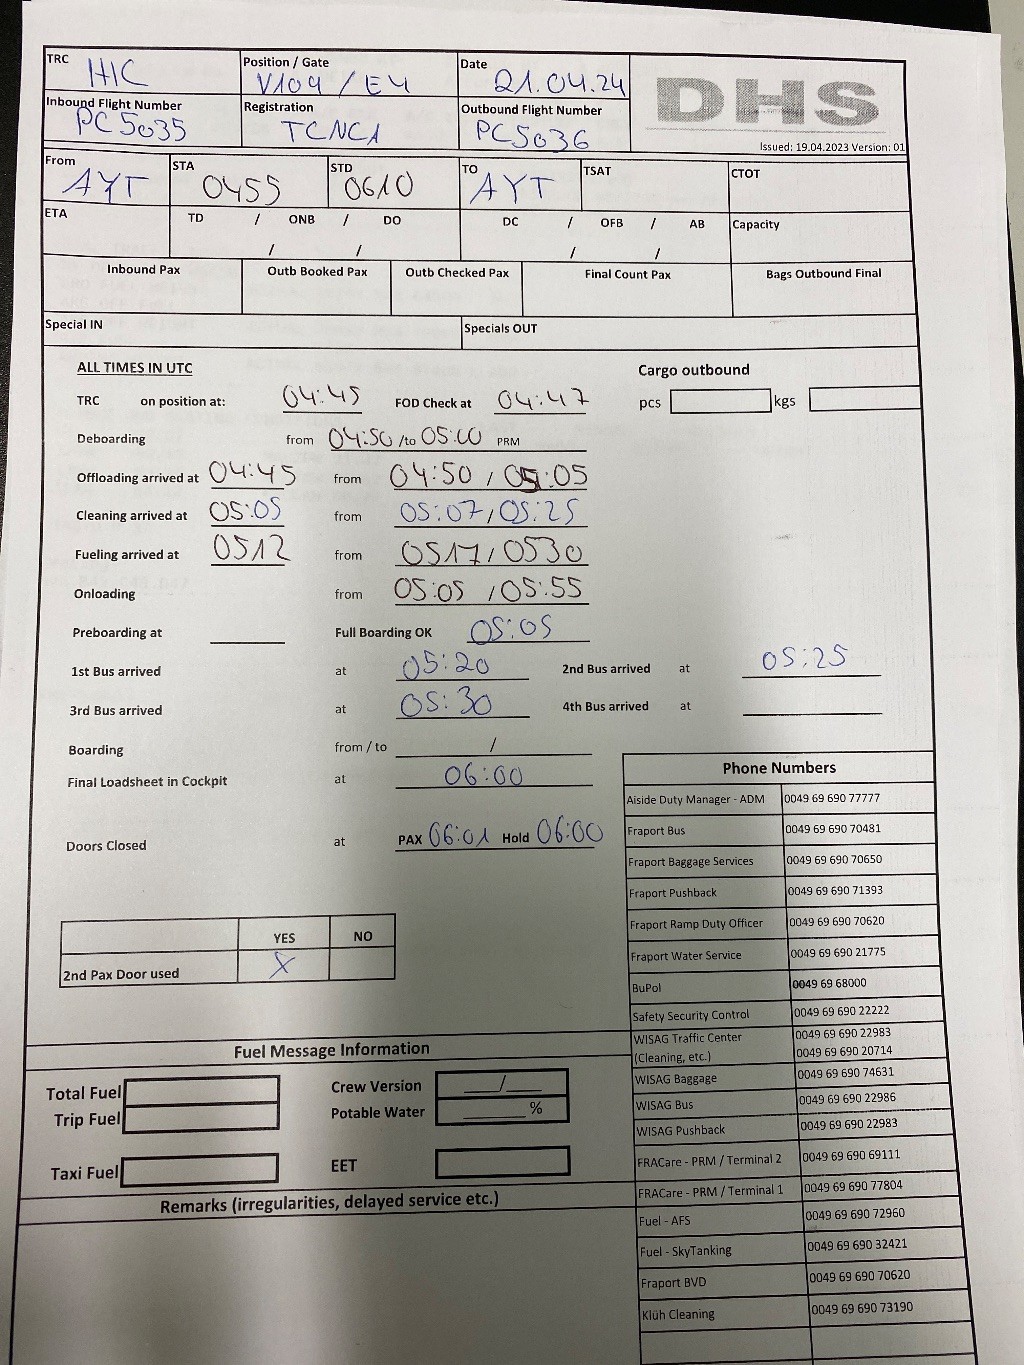 TRC HIC Position / Gate V109 / E4 Date 21.04.24 DHS
Inbound Flight Number PC5035 Registration TCNCA Outbound Flight Number PC5036
Issued: 19.04.2023 Version: 01
From AYT STA 0455 STD 0610 TO AYT TSAT CTOT
ETA TD / ONB / DO DC / OFB / AB Capacity
/ / / /
Inbound Pax Outb Booked Pax Outb Checked Pax Final Count Pax Bags Outbound Final
Special IN Specials OUT
ALL TIMES IN UTC Cargo outbound
TRC on position at: 04:45 FOD Check at 04:47 pcs kgs
Deboarding from 04:50 /to 05:00 PRM
Offloading arrived at 04:45 from 04:50 / 05:05
Cleaning arrived at 05:05 from 05:07 / 05:25
Fueling arrived at 0512 from 0517 / 0530
Onloading from 05:05 / 05:55
Preboarding at Full Boarding OK 05:05
1st Bus arrived at 05:20 2nd Bus arrived at 05:25
3rd Bus arrived at 05:30 4th Bus arrived at
Boarding from / to /
Final Loadsheet in Cockpit at 06:00
Doors Closed at PAX 06:01 Hold 06:00
YES NO
2nd Pax Door used X
Phone Numbers
Aiside Duty Manager - ADM 0049 69 690 77777
Fraport Bus 0049 69 690 70481
Fraport Baggage Services 0049 69 690 70650
Fraport Pushback 0049 69 690 71393
Fraport Ramp Duty Officer 0049 69 690 70620
Fraport Water Service 0049 69 690 21775
BuPol 0049 69 68000
Safety Security Control 0049 69 690 22222
WISAG Traffic Center 0049 69 690 22983
(Cleaning, etc.) 0049 69 690 20714
WISAG Baggage 0049 69 690 74631
WISAG Bus 0049 69 690 22986
WISAG Pushback 0049 69 690 22983
FRACare - PRM / Terminal 2 0049 69 690 69111
FRACare - PRM / Terminal 1 0049 69 690 77804
Fuel - AFS 0049 69 690 72960
Fuel - SkyTanking 0049 69 690 32421
Fraport BVD 0049 69 690 70620
Klüh Cleaning 0049 69 690 73190
Fuel Message Information
Total Fuel Crew Version /
Trip Fuel Potable Water %
Taxi Fuel EET
Remarks (irregularities, delayed service etc.)